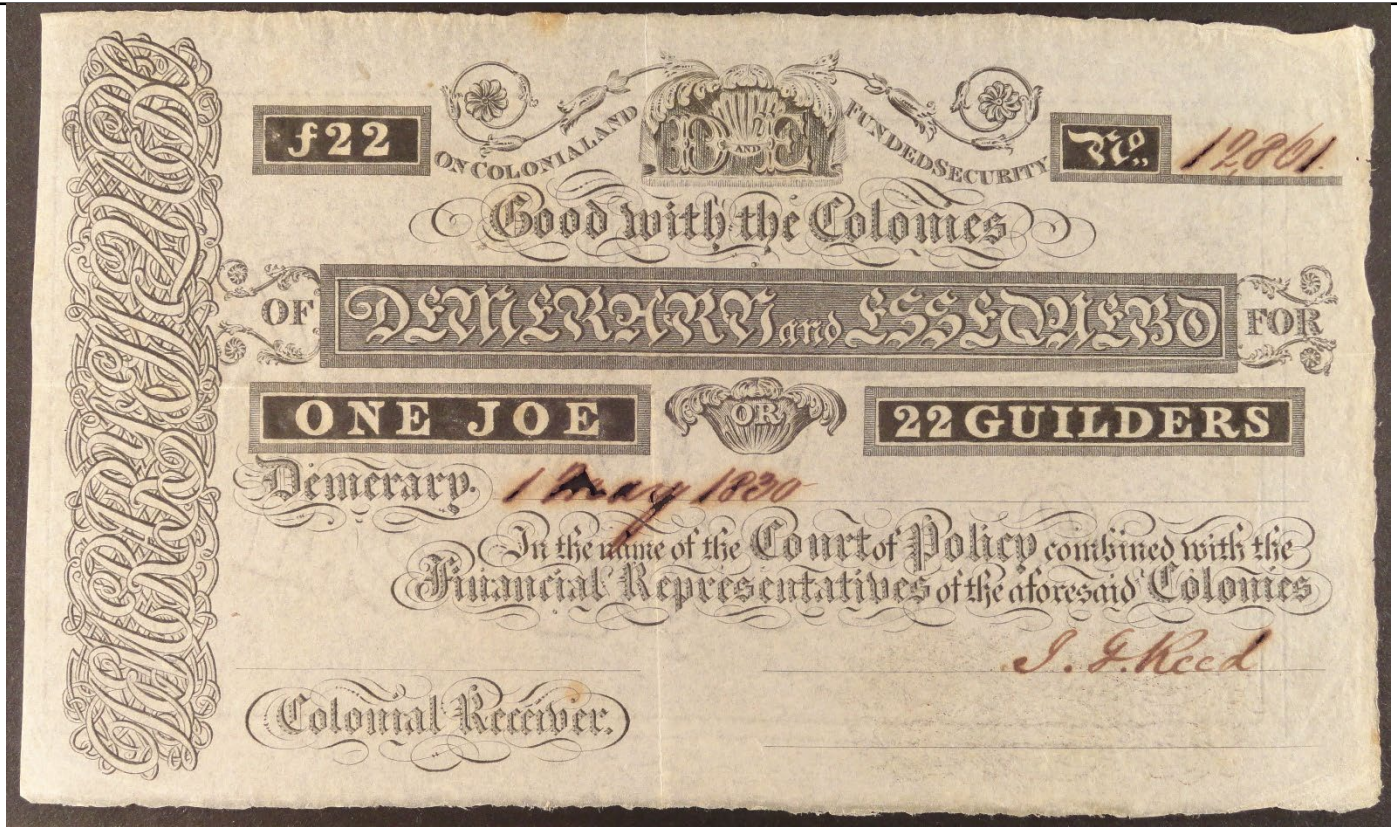 ƒ22
ON COLONIAL LAND D AND E FUNDED SECURITY
No. 12,861.
Good with the Colonies
OF DEMERARY and ESSEQUEBO FOR
ONE JOE OR 22 GUILDERS
Demerary. 1 May 1830
In the name of the Court of Policy combined with the
Financial Representatives of the aforesaid Colonies
J. G. Reed
Colonial Receiver.